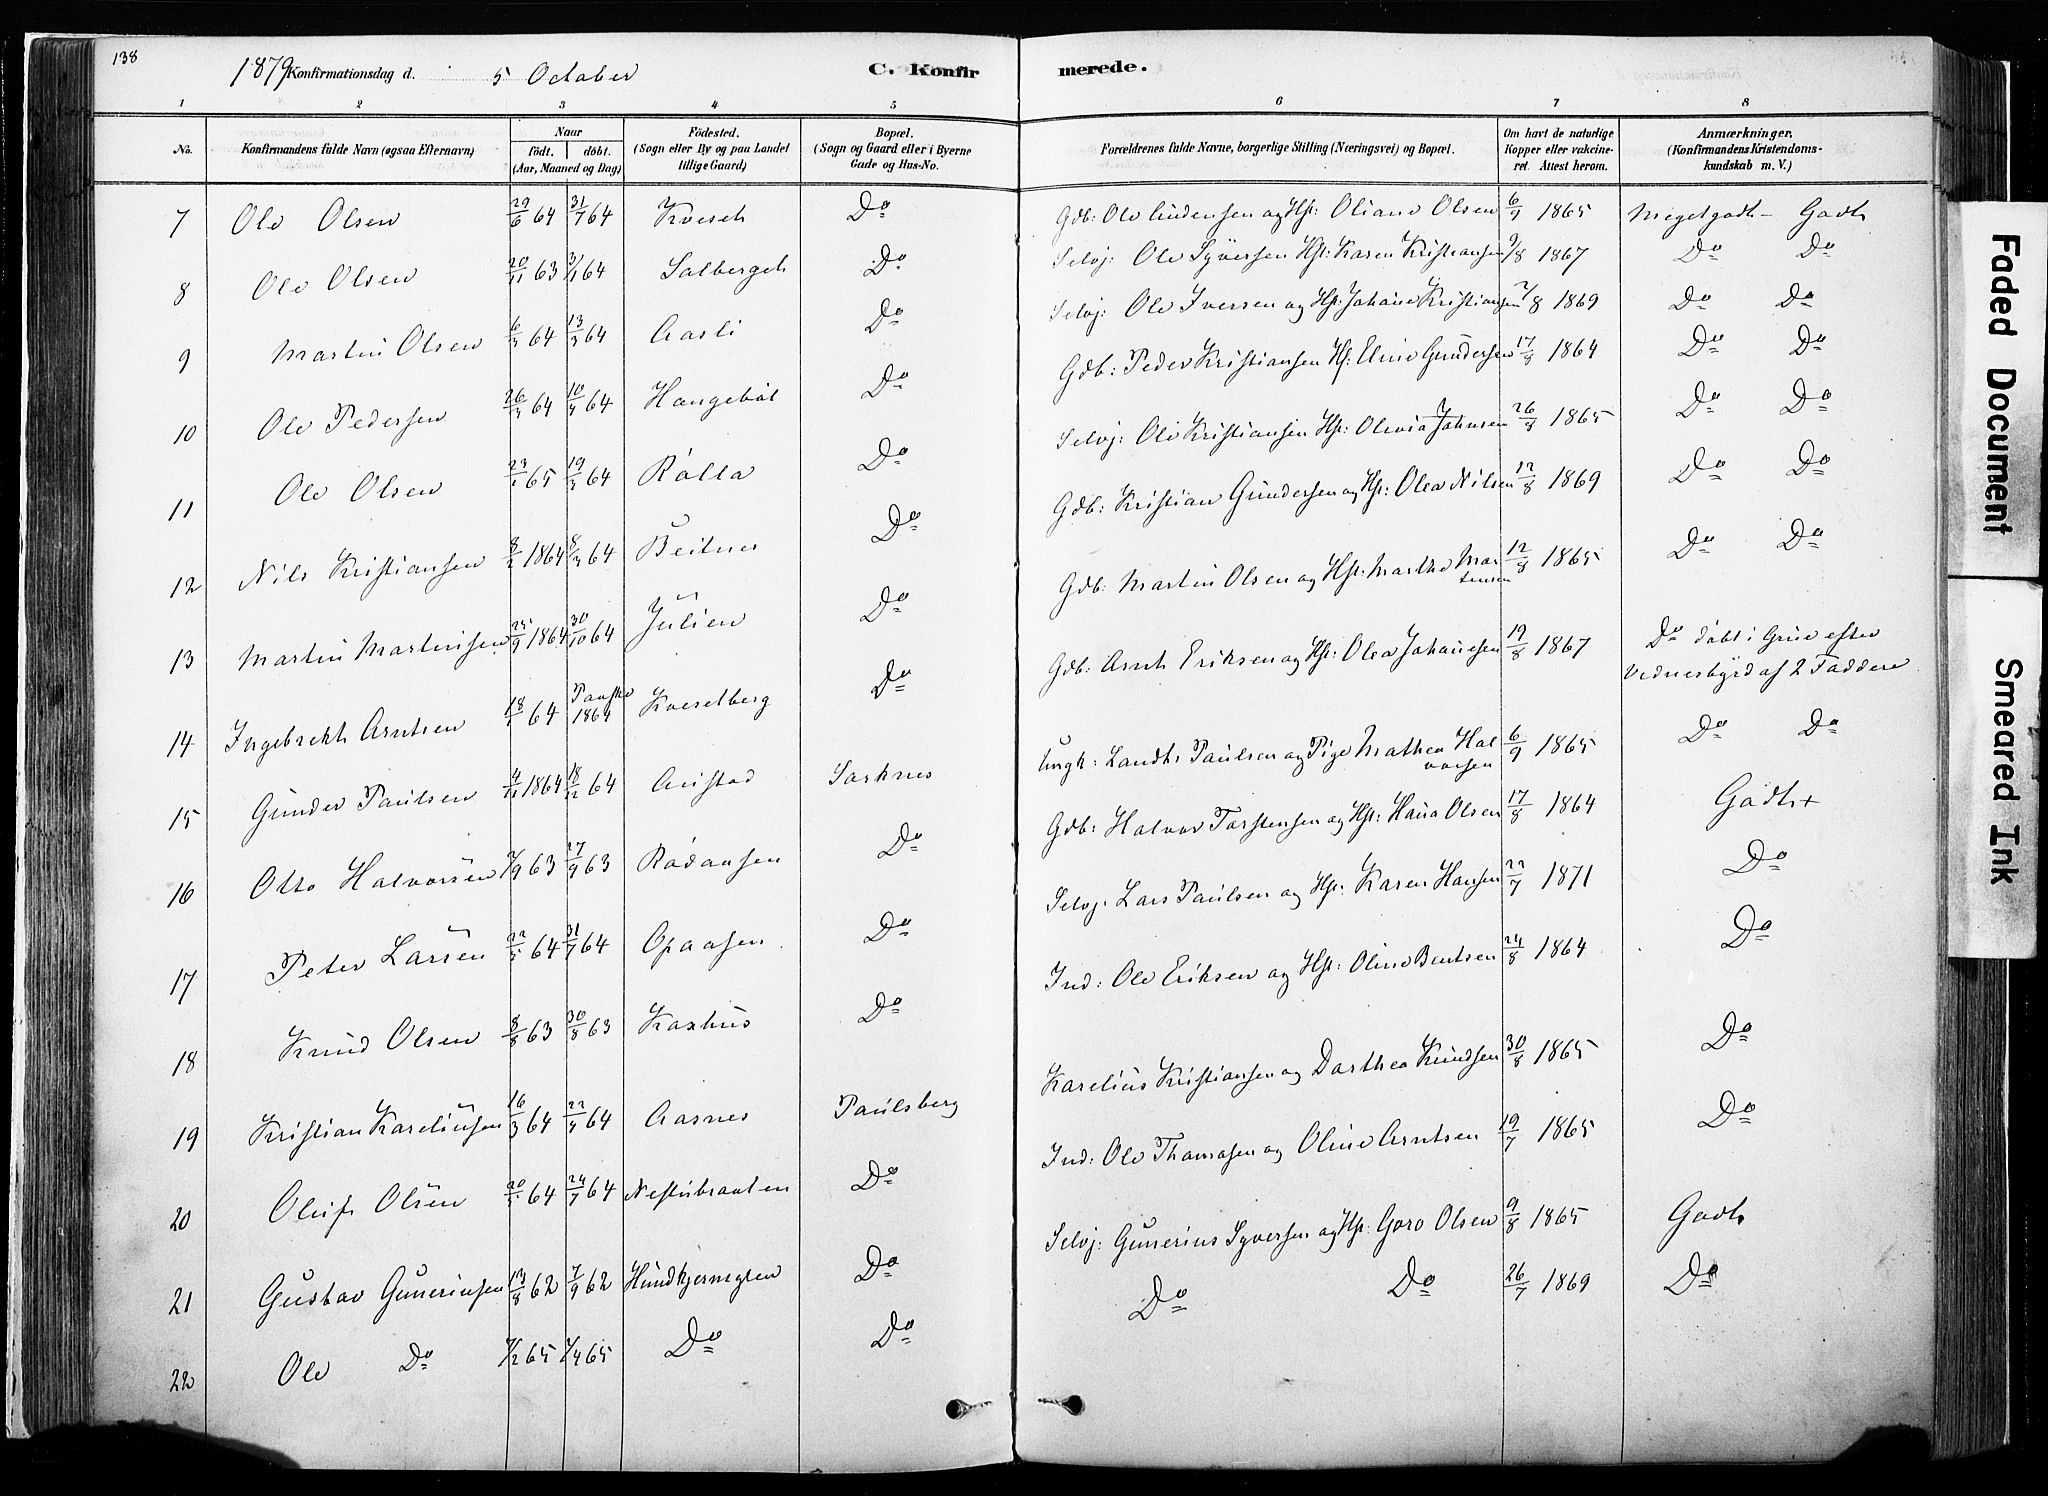 138
1879 Konfirmationsdag d. 5 October
C. Konfirmerede.
1 2 3 4 5 6 7 8
No.
Konfirmandens fulde Navn (ogsaa Efternavn)
Naar
födt. döbt.
(Aar, Maaned og Dag)
Födested.
(Sogn eller By og paa Landet
tillige Gaard)
Bopæl.
(Sogn og Gaard eller i Byerne
Gade og Hus-No.
Forældrenes fulde Navne, borgerlige Stilling (Næringsvei) og Bopæl.
Om havt de naturlige
Kopper eller vakcine-
ret. Attest herom.
Anmærkninger.
(Konfirmandens Kristendoms-
kundskab m. V.)
7 Ole Olsen 29/6 64 31/7 64 Do Gdb: Ole og Hst: Oliane Olsen 6/9 1865 Megetgodt - Godt
8 Ole Olsen 20/11 63 3/1 64 Solberget Do Selvj: Ole Syversen Hst: Karen Kristiansen 9/8 1867 Do Do
9 Martin Olsen 6/3 64 13/3 64 Aasli Do Selvj: Ole Iversen og Hst: Johane Kristiansen 7/8 1869 Do Do
10 Ole Pedersen 26/3 64 10/4 64 Do Gdb: Peder Kristiansen Hst: Eline Gundersen 17/8 1864 Do Do
11 Ole Olsen 65 19/3 64 Do Selvj: Ole Kristiansen Hst: Olivia Johnsen 26/8 1865 Do Do
12 Nils Kristiansen 8/2 1864 8/3 64 Beitnes Do Gdb: Kristian Gundersen og Hst: Olea Nilsen 12/8 1869 Do Do
13 Martin Martinsen 25/9 1864 30/10 64 Julien Do Gdb: Martin Olsen og Hst: Marthe Mor
tensen 12/8 1865 Do Do
14 Ingebrekt Arntsen 18/1 64 Paaske
1864 Kveselberg Do Gdb: Arnt Eriksen og Hst: Olea Johannesen 19/8 1867 Do döbt i Grue efter
Vidnesbyrd af 2 Faddere
15 Gunder Paulsen 4/11 1864 18/12 64 Aristad Sorknes Ungk: Paulsen og Pige Mathea Hal
vorsen 6/9 1865 Do Do
16 Otto Halvorsen 7/9 63 27/9 63 Rödaasen Do Gdb: Halvor Torstensen og Hst: Hana Olsen 17/8 1864 Godt +
17 Peter Larsen 22/5 64 31/7 64 Opaasen Do Selvj. Lars Paulsen og Hst: Karen Hansen 22/7 1871 Do
18 Knud Olsen 8/8 63 30/8 63 Do Ind: Ole Eriksen og Hst: Oline Bentsen 24/8 1864 Do
19 Kristian Kareliusen 16/3 64 22/4 64 Aasnes Paulsberg Karelius Kristiansen og Dorthea Knudsen 30/8 1865 Do
20 Oluf Olsen 20/5 64 24/7 64 Nestubraaten Do Ind: Ole Thomasen og Oline Arntsen 19/7 1865 Do
21 Gustav Guneriusen 13/8 62 7/9 62 Do Selvj: Gunerius Syversen og Hst: Goro Olsen 9/8 1865 Godt
22 Ole Do 7/2 65 1/4 65 Do Do Do Do 26/7 1869 Do
Faded Document
Smeared Ink